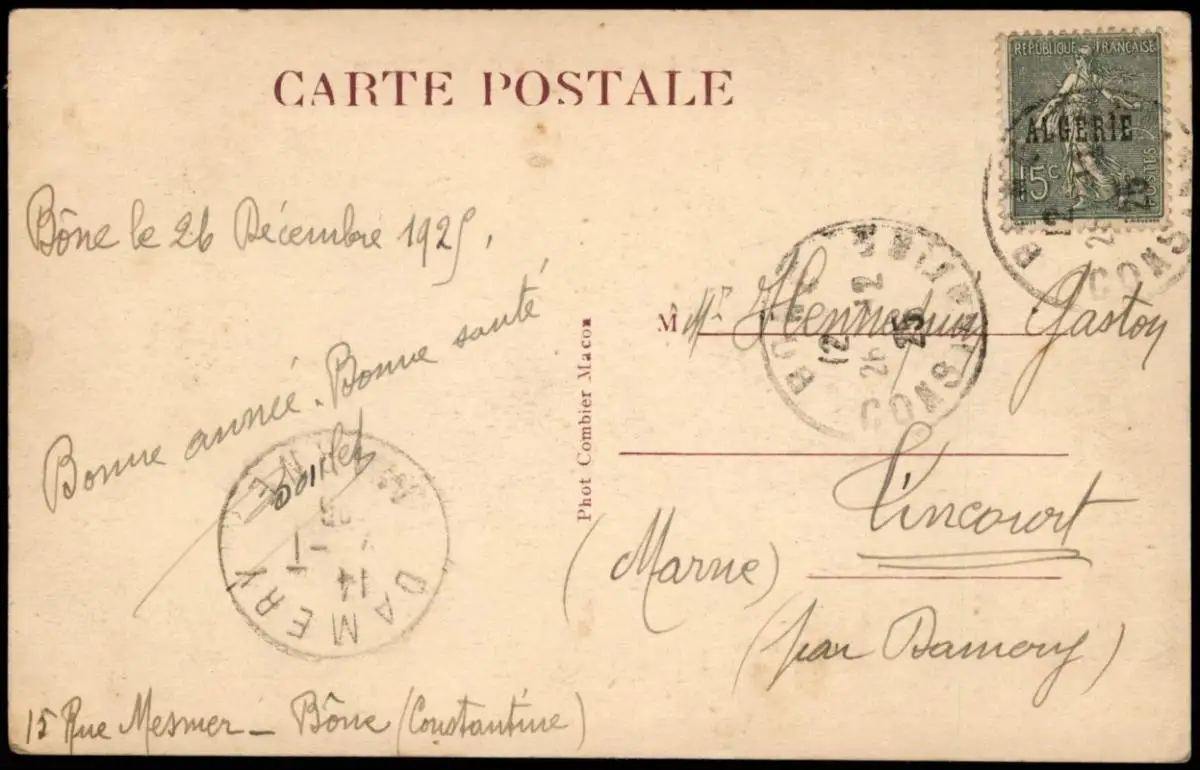 CARTE POSTALE
REPUBLIQUE FRANÇAISE
ALGERIE
15c
POSTES
Bône le 26 Décembre 1925,
Bonne année. Bonne santé
15 Rue Mesmer - Bône (Constantine)
Phot Combier Macon
M Mr Gaston
(Marne)
(par Damery)
BONE
12
26 -12
25
CONSTANTINE
BONE
12
25
CONS
DAMERY
MARNE
14